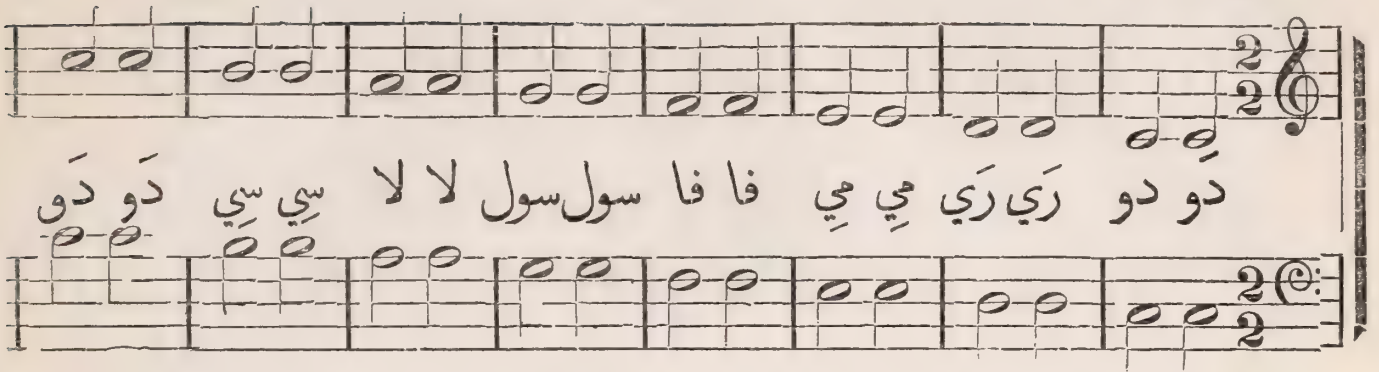 2
2
دَو دو رَي رَي مِي مِي فا فا سول سول لا لا سِي سِي دَو دَو
2
2